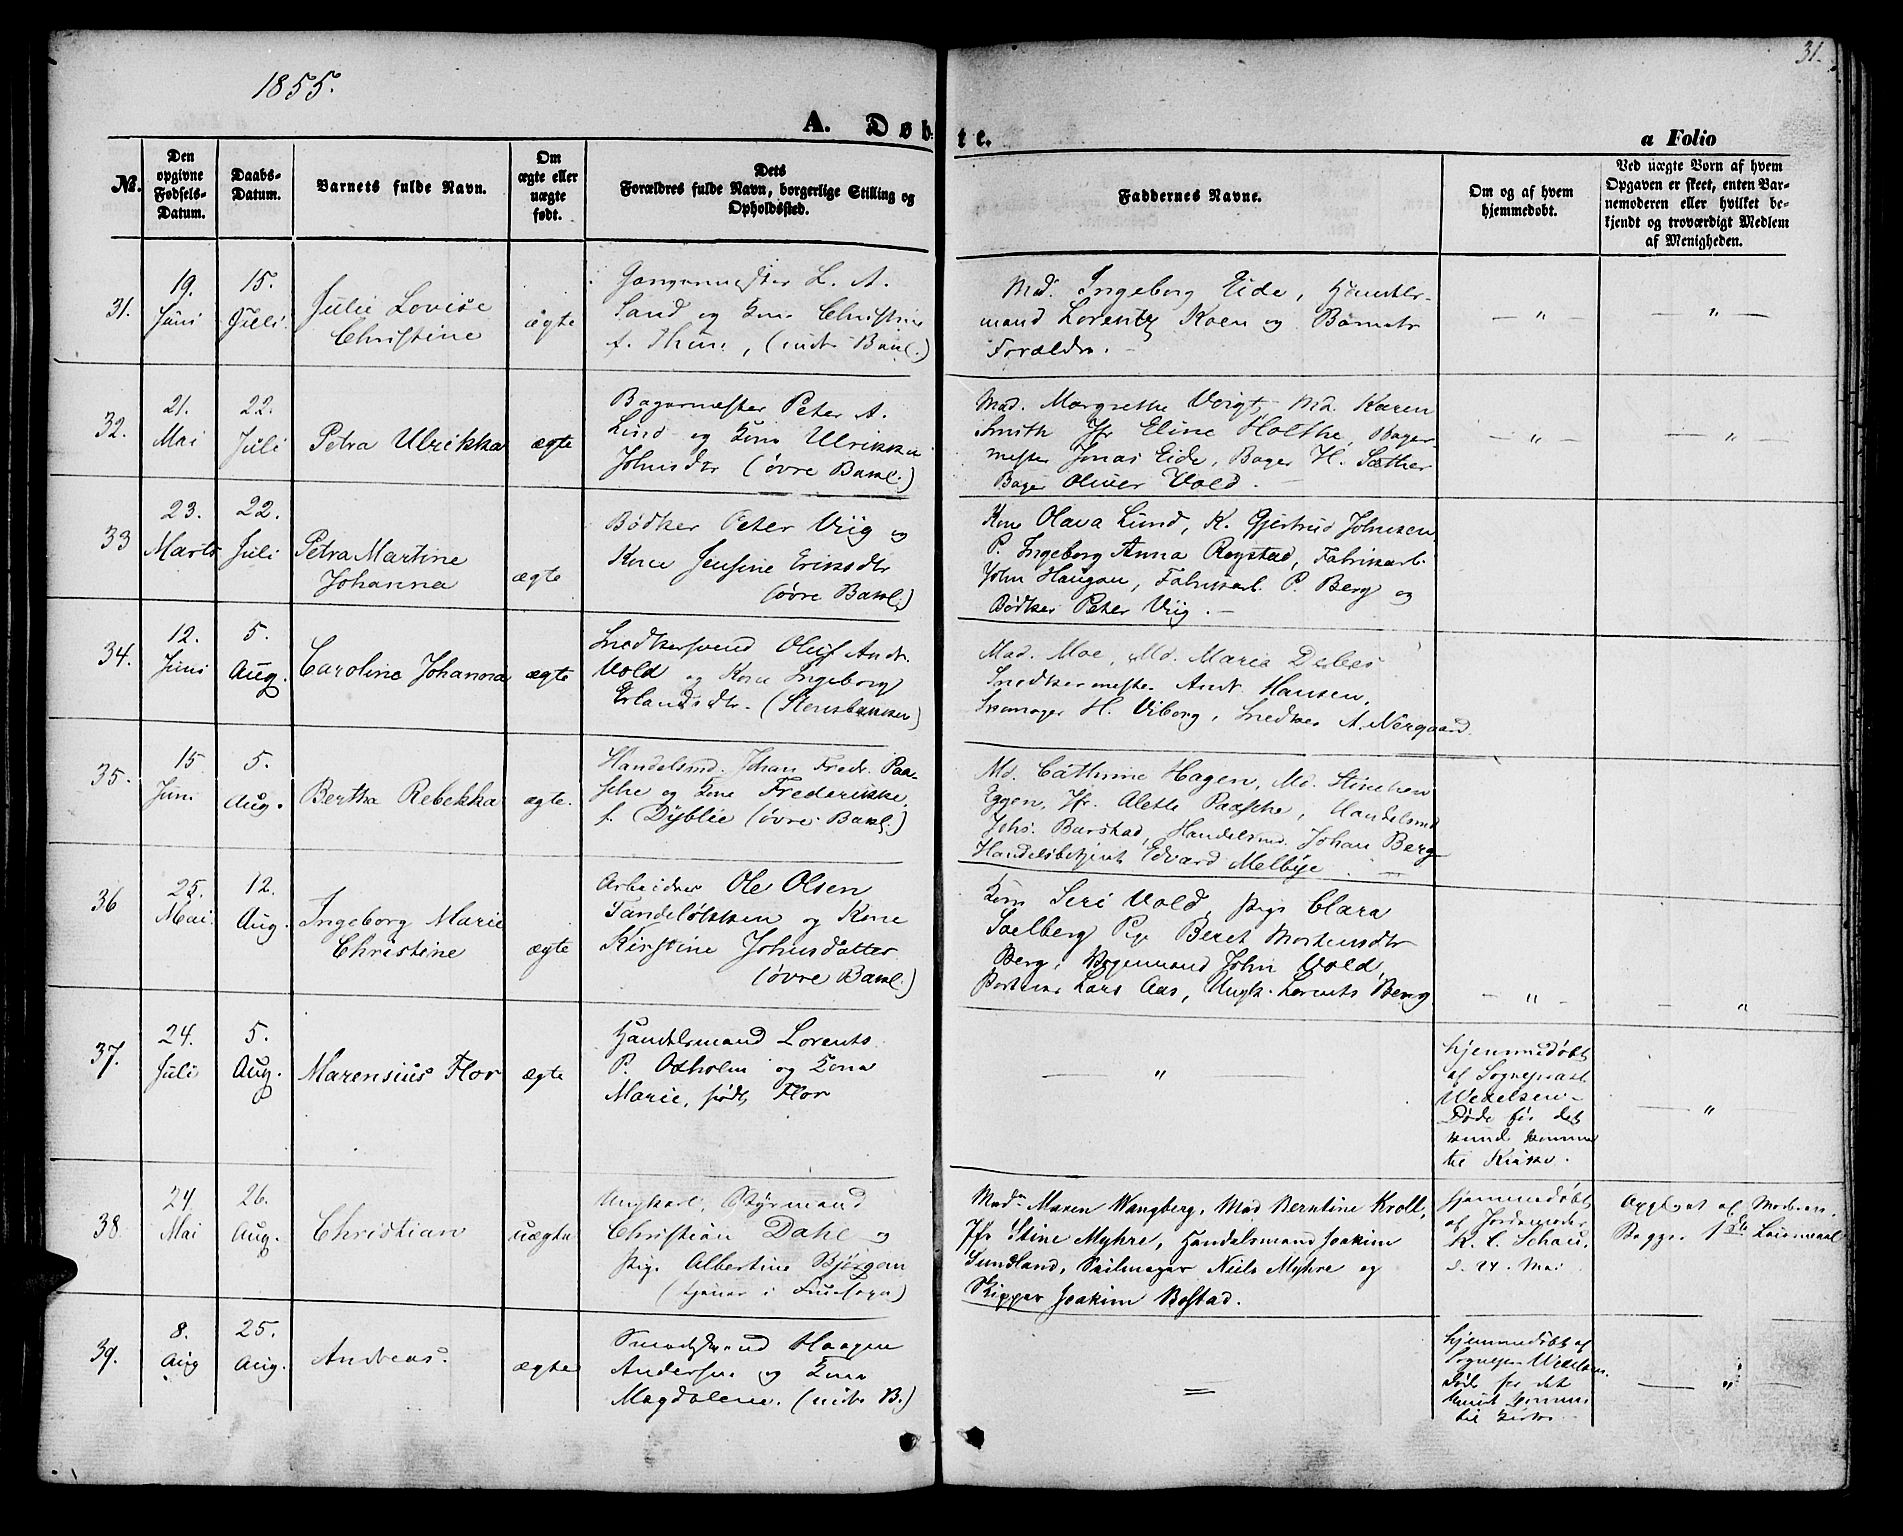 1855.
31.
A. Døbte.
a Folio
No.
Den opgivne Fødsels-Datum.
Daabs-Datum.
Barnets fulde Navn.
Om ægte eller uægte født.
Dets Forældres fulde Navn, borgerlige Stilling og Opholdssted.
Faddernes Navne.
Om og af hvem hjemmedøbt.
Ved uægte Børn af hvem Opgaven er skeet, enten Barnemoderen eller hvilket bekjendt og troværdigt Medlem af Menigheden.
31.
19. Juni
15. Juli.
Julie Lovise
Christine
ægte
L. A.
Sand og Kone Christine
f. Thine, (indtr. Bakl.)
Md. Ingeborg Eide, Handels-
mand Lorentz Koen og Barnets
Forældre. -
— " —
— " —
32.
21. Mai
22. Juli
Petra Ulrikka
ægte
Bagermester Peter A.
Lind og Kone Ulrikka
Johnsdtr (øvre Bakl.)
Mad. Margrethe Voigt, Md. Karen
Smith Jfr Eline Holthe, Bager-
mester Jonas Eide, Bager H. Sæther
Bager Oliver Vold. -
— " —
— " —
33
23. Marts
22. Juli
Petra Martine
Johanna
ægte
Bødker Peter Viig og
Kone Jensine Eriksdtr
(øvre Bakl.)
Kone Olava Lund, K. Gjertrud Johnsen
P. Ingeborg Anna Røystad, Fabrikarb.
John Haugan, Fabrikarb. P. Berg og
Bødker Peter Viig. -
34.
12. Juni
5. Aug.
Caroline Johanna
ægte
Snedkersvend Oluf Andr.
Vold og Kone Ingeborg
Erlandsdtr. (Stensbakken)
Mad. Moe, Md. Maria
Snedkermester Andr. Hansen,
H. Viborg, Snedker A. Nergaard.
35.
15 Juni
5. Aug.
Bertha Rebekka
ægte.
Handelsmd. Johan Fredr. Paa-
sche og Kone Frederikke,
f. Dyblie (øvre Bakl.)
Md. Cathrine Hagen, Md. Stinchen
Eggen, Jfr. Alette Paasche, Handelsmd
Johs. Barstad, Handelsmd. Johan Berg
Handelsbetjent Edvard Melbye. -
36
25. Mai.
12. Aug.
Ingeborg Marie
Christine
ægte
Arbeider Ole Olsen
Tandeløkken og Kone
Kirstine Johnsdatter
(øvre Bakl.)
Kone Seri Vold, Pige Clara
Soelberg Pige Beret Mortensdtr
Berg, Vognmand John Vold,
Lars Aas, Ungk. Lorents Berg.
— " —
— "
37.
24. Juli
5. Aug.
Marensius Flor
ægte
Handelsmand Lorents
P. Oxholm og Kone
Marie, født Flor
— " —
hjemmedøbt
af Sognepræst
Wedelsen -
Døde før det
kunde komme
til Kirke.
— " —
38.
24 Mai
26. Aug.
Christian
uægte
Ungkarl, Styrmand
Christian Dahl og
Pige Albertine Bjørgan
(tjener i Fruesogn)
Mad. Maren Wangberg, Mad Berntine Kroll,
Jfr Stine Myhre, Handelsmand Joakim
Sundland, Seilmager Niels Myhre og
Skipper Joakim Bostad.
hjemmedøbt
af Jordemoder
K. C. Schau,
d. 24. Mai
Opgivet af Moderen.
Begges 1ste Leiermaal
39.
8. Aug
25. Aug.
Andreas.
ægte
Haagen
Andersen og Kone
Magdalene. (indtr B.)
=
hjemmedøbt af
Sognepr. Wedelsen.
Døde før det
kunde komme
til Kirke.
— " —